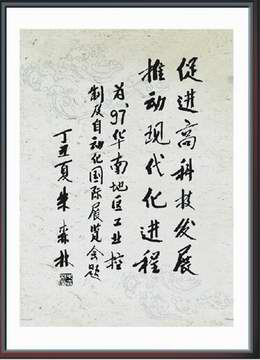 促进高科技发展
推动现代化进程
为'97华南地区工业控
制及自动化国际展览会题
丁丑夏 朱森林